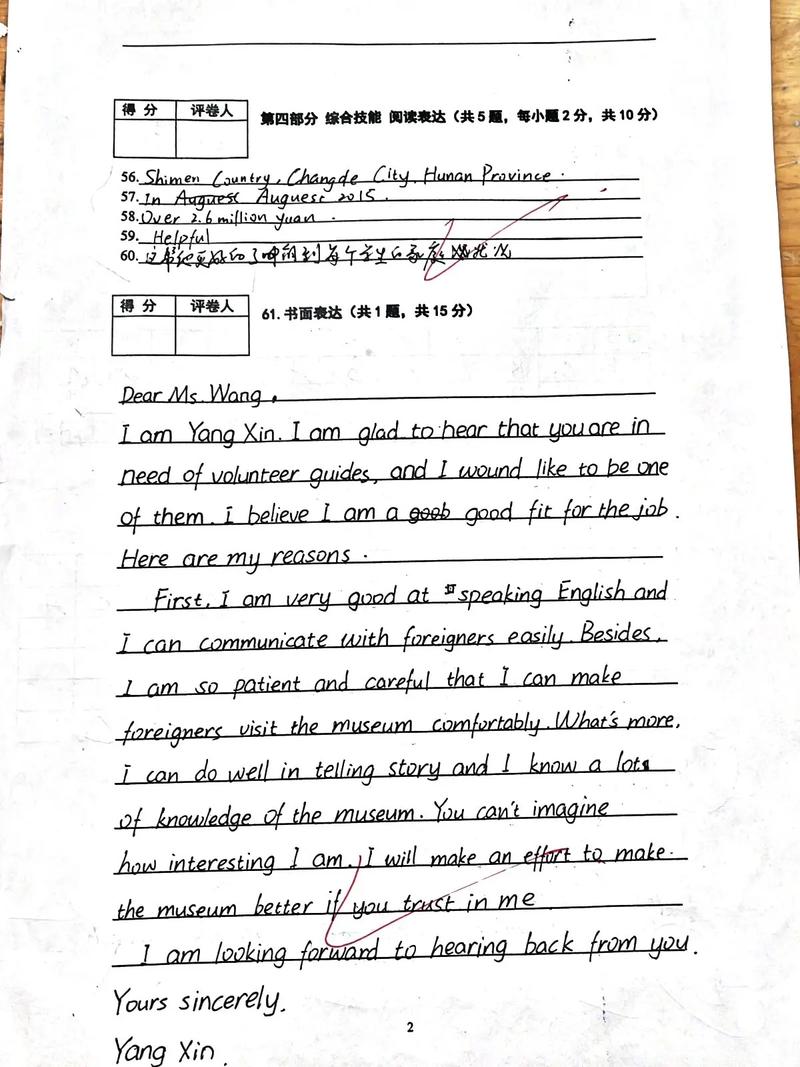 得 分 评卷人
第四部分 综合技能 阅读表达（共5题，每小题2分，共10分）
56. Shimen Country, Changde City, Hunan Province.
57. In Auguest Auguest 2015.
58. Over 2.6 million yuan.
59. Helpful
60. 这帮他更好的了解到每个学生的家庭状况
得 分 评卷人
61. 书面表达（共1题，共15分）
Dear Ms. Wang,
I am Yang Xin. I am glad to hear that you are in
need of volunteer guides, and I wound like to be one
of them. I believe I am a goob good fit for the job.
Here are my reasons.
First, I am very good at speaking English and
I can communicate with foreigners easily. Besides,
I am so patient and careful that I can make
foreigners visit the museum comfortably. What's more,
i can do well in telling story and I know a lots
of knowledge of the museum. You can't imagine
how interesting I am. I will make an effort to make
the museum better if you trust in me
I am looking forward to hearing back from you.
Yours sincerely.
Yang Xin.
2